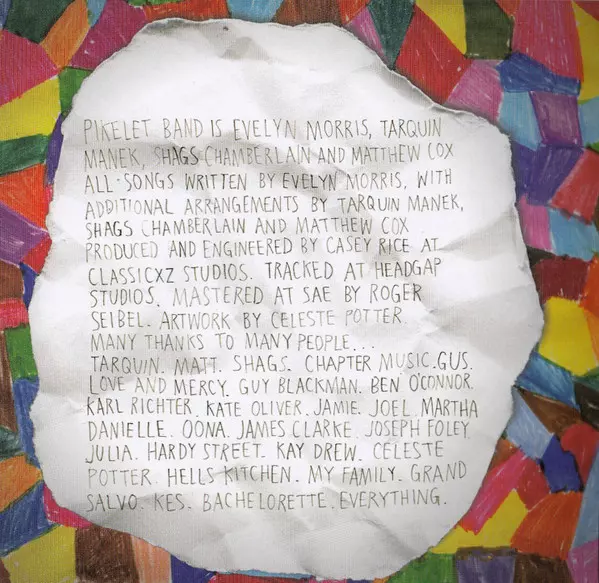 PIKELET BAND IS EVELYN MORRIS, TARQUIN
MANEK, SHAGS CHAMBERLAIN AND MATTHEW COX
ALL SONGS WRITTEN BY EVELYN MORRIS, WITH
ADDITIONAL ARRANGEMENTS BY TARQUIN MANEK,
SHAGS CHAMBERLAIN AND MATTHEW COX
PRODUCED AND ENGINEERED BY CASEY RICE AT
CLASSICXZ STUDIOS. TRACKED AT HEADGAP
STUDIOS. MASTERED AT SAE BY ROGER
SEIBEL. ARTWORK BY CELESTE POTTER.
MANY THANKS TO MANY PEOPLE...
TARQUIN. MATT. SHAGS. CHAPTER MUSIC. GUS.
LOVE AND MERCY. GUY BLACKMAN. BEN O'CONNOR.
KARL RICHTER. KATE OLIVER. JAMIE. JOEL. MARTHA
DANIELLE. OONA. JAMES CLARKE. JOSEPH FOLEY.
JULIA. HARDY STREET. KAY DREW. CELESTE
POTTER. HELLS KITCHEN. MY FAMILY. GRAND
SALVO. KES. BACHELORETTE. EVERYTHING.